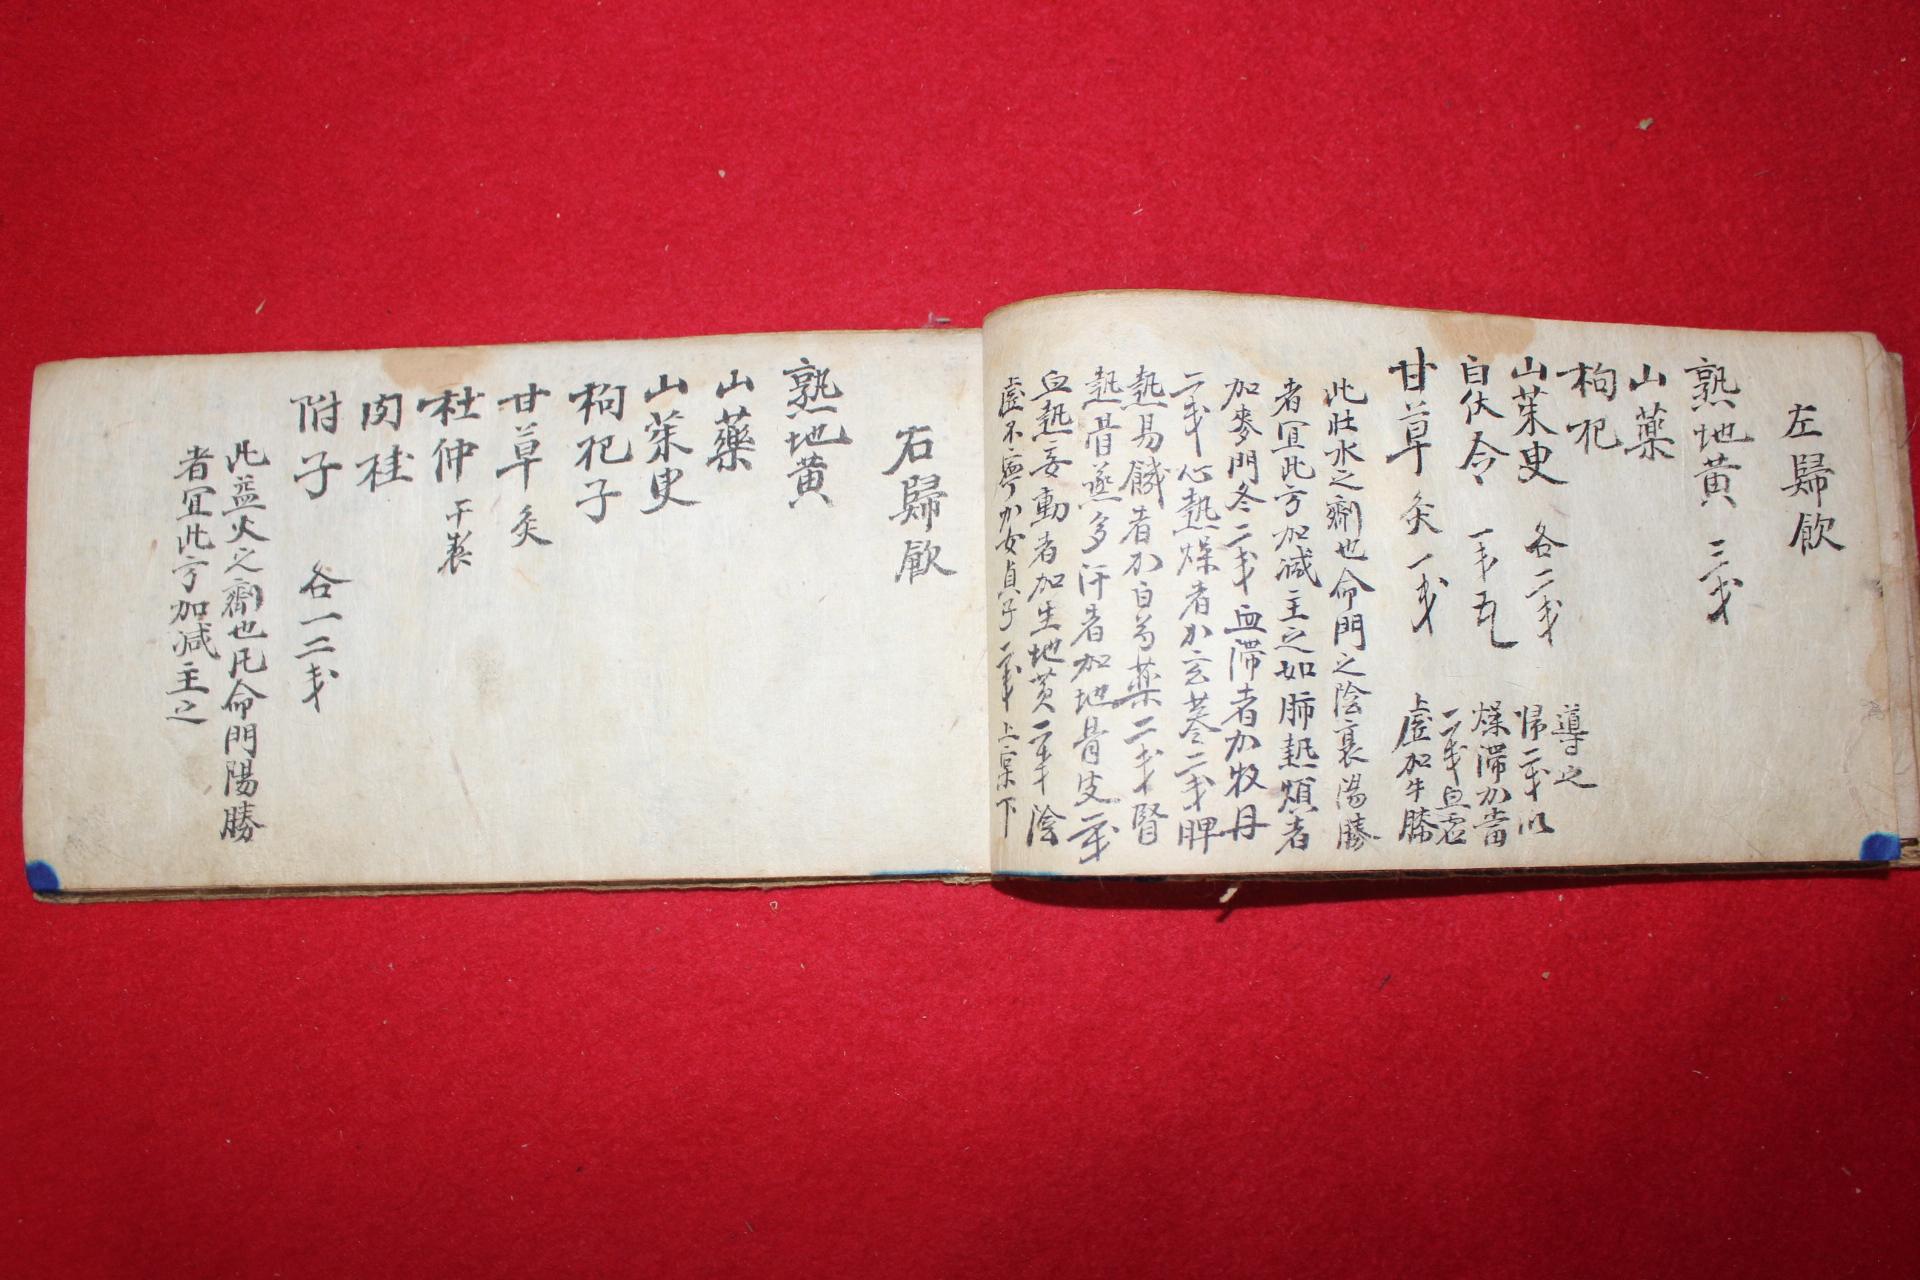 左歸飮
熟地黃 三戔
山藥
枸杞
山茱臾 各二戔
白伏令 一戔五
甘草 灸 一戔
此壯水之劑也命門之陰衰陽勝
者宜此方加減主之如肺熱煩者
加麥門冬二戔血滯者加牧丹
二戔心熱燥者加玄蔘二戔脾
熱易饑者加白芍藥二戔腎
熱骨蒸多汗者加地骨皮二戔
血熱妄動者加生地黃二戔陰
虛不寧加女貞子二戔上實下
上虛加牛膝
二戔血虛
燥滯加當
帰二戔以
導之
右歸飮
熟地黃
山藥
山茱臾
枸杞子
甘草 灸
杜仲 干製
肉桂
附子 各一二戔
此益火之劑也凡命門陽勝
者宜此方加減主之